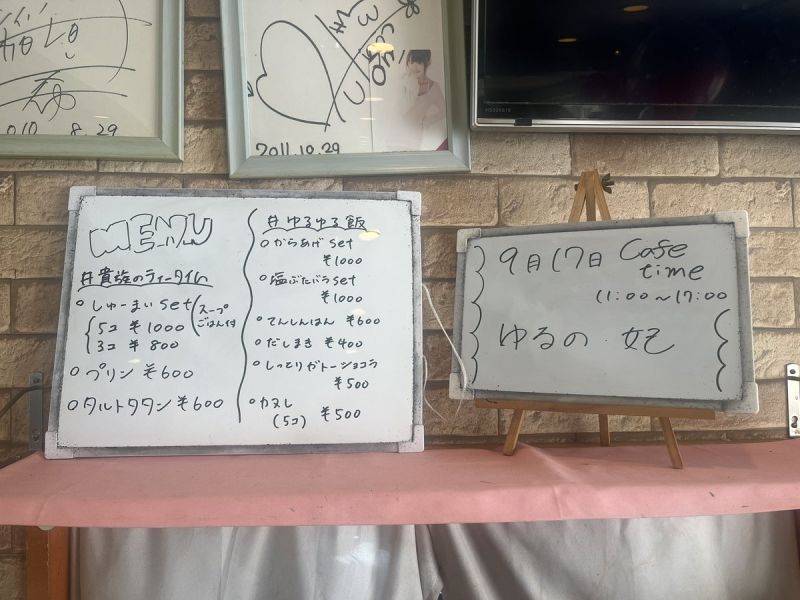 2010 8.29
2011.10.29
MENU
#貴族のティータイム
○しゅーまい set
5コ ¥1000
3コ ¥800
スープ
ごはん付
○プリン ¥600
○タルトタタン ¥600
#ゆるゆる飯
○からあげ set
¥1000
○塩ぶたバラ set
¥1000
○てんしんはん ¥600
○だしまき ¥400
○しっとりガトーショコラ
¥500
○カヌレ
(5コ) ¥500
9月17日 Cafe
time
11:00〜17:00
ゆるの・妃